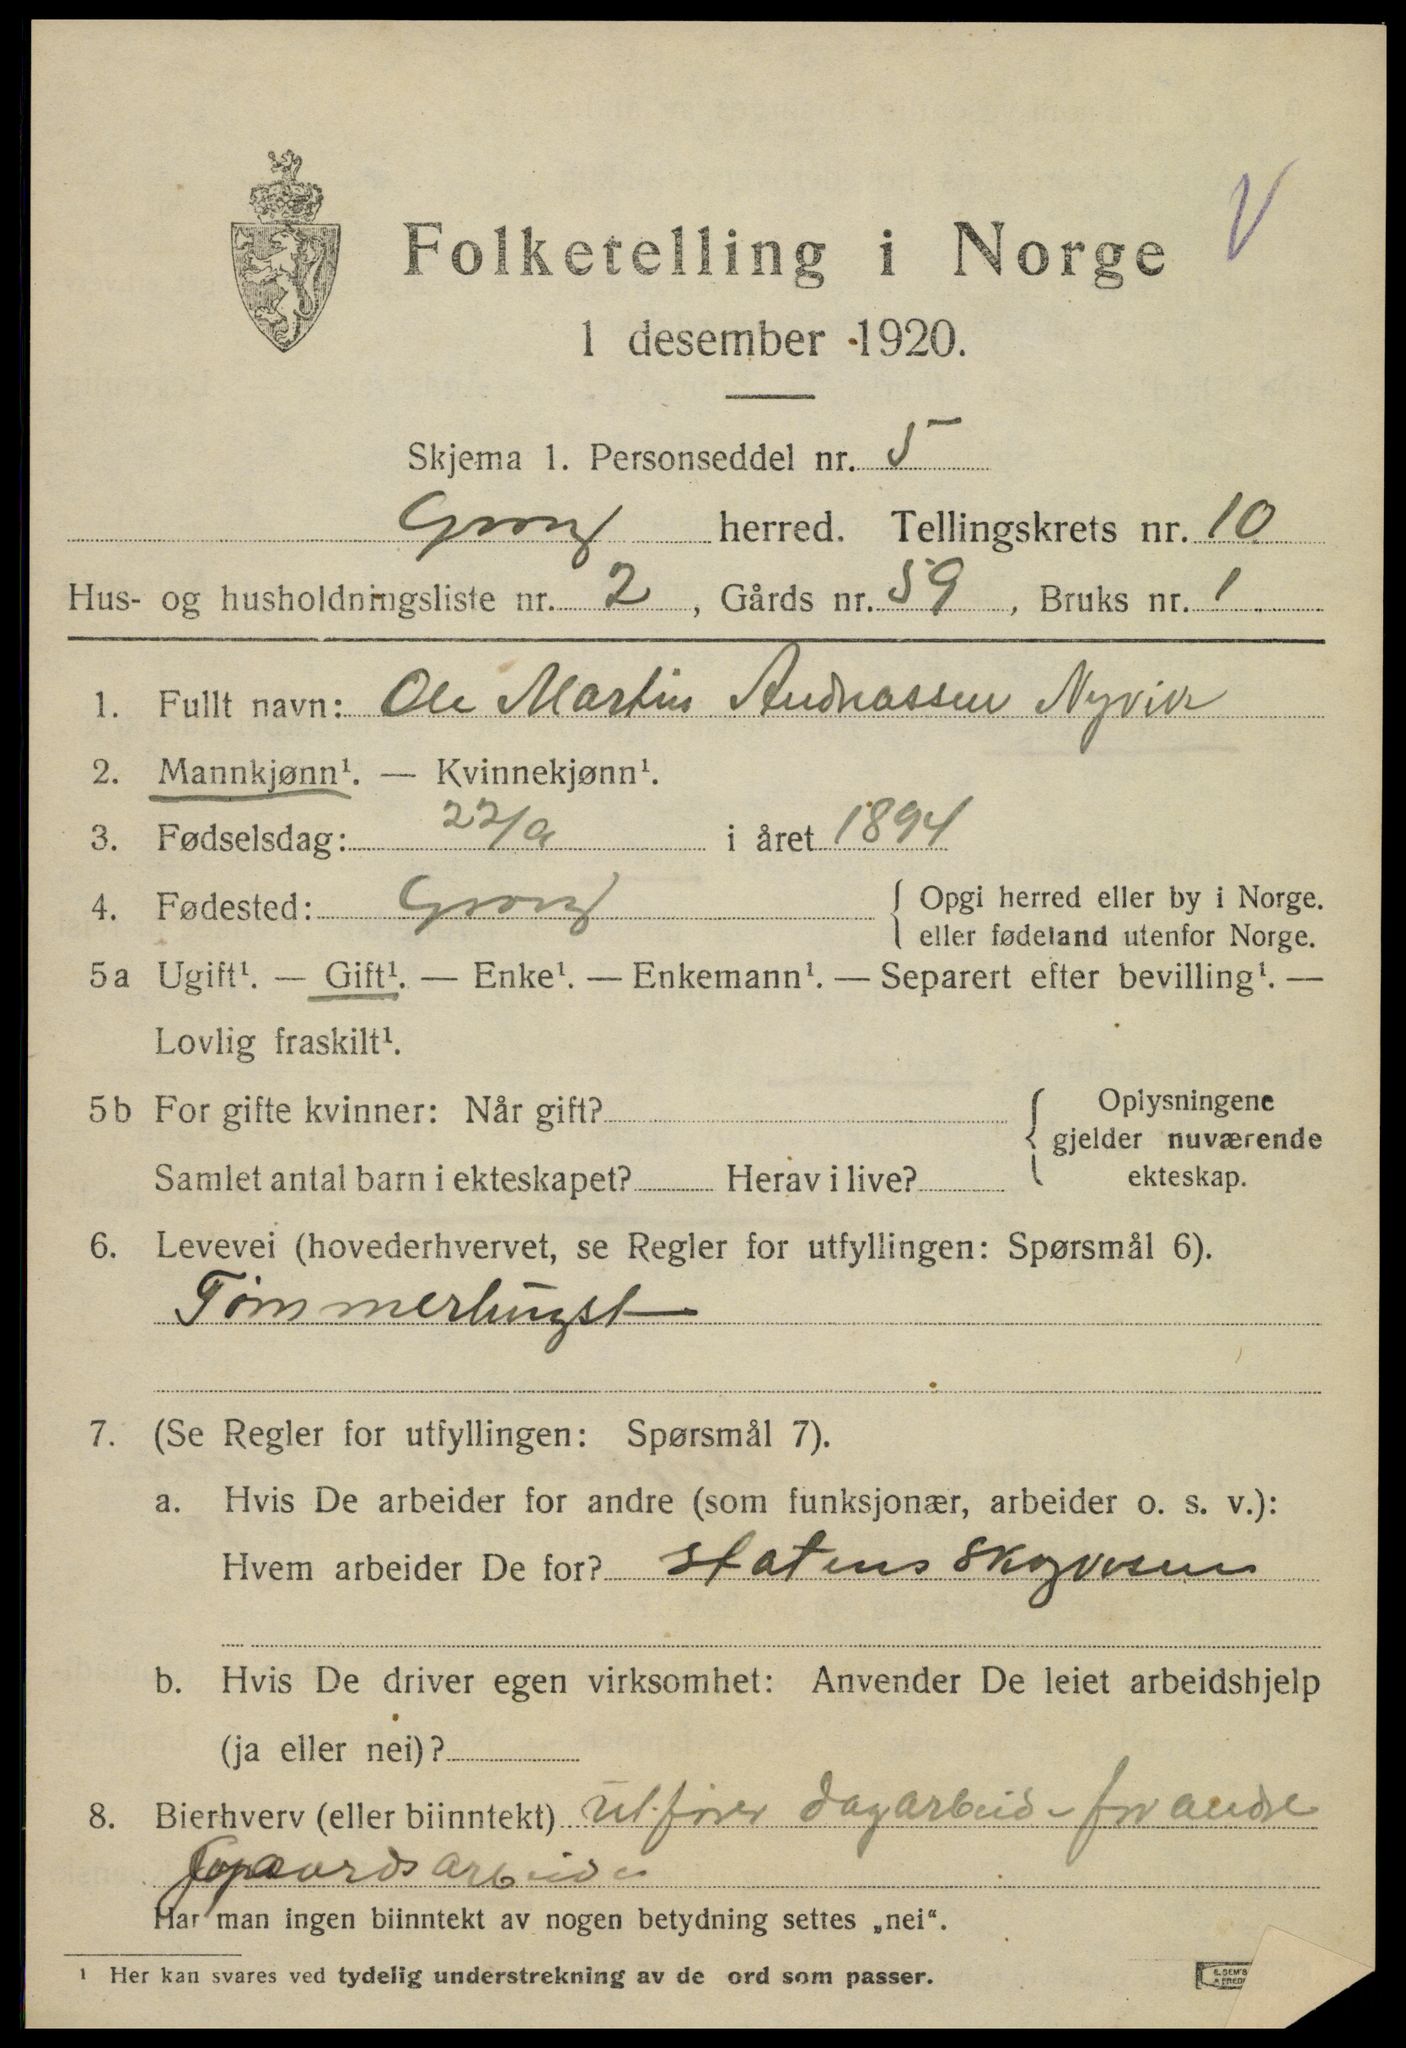 V
Folketelling i Norge
1 desember 1920.
Skjema 1. Personseddel nr. 5
Grong herred. Tellingskrets nr. 10
Hus- og husholdningsliste nr. 2, Gårds nr. 59, Bruks nr. 1
1. Fullt navn: Ole Martin Andreassen Nyvik
2. Mannkjønn¹. — Kvinnekjønn¹.
3. Fødselsdag: 22/9 i året 1894
4. Fødested: Grong { Opgi herred eller by i Norge.
eller fødeland utenfor Norge.
5a Ugift¹. — Gift¹. — Enke¹. — Enkemann¹. — Separert efter bevilling¹. —
Lovlig fraskilt¹.
5b For gifte kvinner: Når gift? { Oplysningene
gjelder nuværende
Samlet antal barn i ekteskapet? Herav i live? ekteskap.
6. Levevei (hovederhvervet, se Regler for utfyllingen: Spørsmål 6).
Tømmerhugst
7. (Se Regler for utfyllingen: Spørsmål 7).
a. Hvis De arbeider for andre (som funksjonær, arbeider o. s. v.):
Hvem arbeider De for? statens skogvesen
b. Hvis De driver egen virksomhet: Anvender De leiet arbeidshjelp
(ja eller nei)?
8. Bierhverv (eller biinntekt) Utfører dagarbeid for andre
arbeide
Har man ingen biinntekt av nogen betydning settes „nei“.
¹ Her kan svares ved tydelig understrekning av de ord som passer.